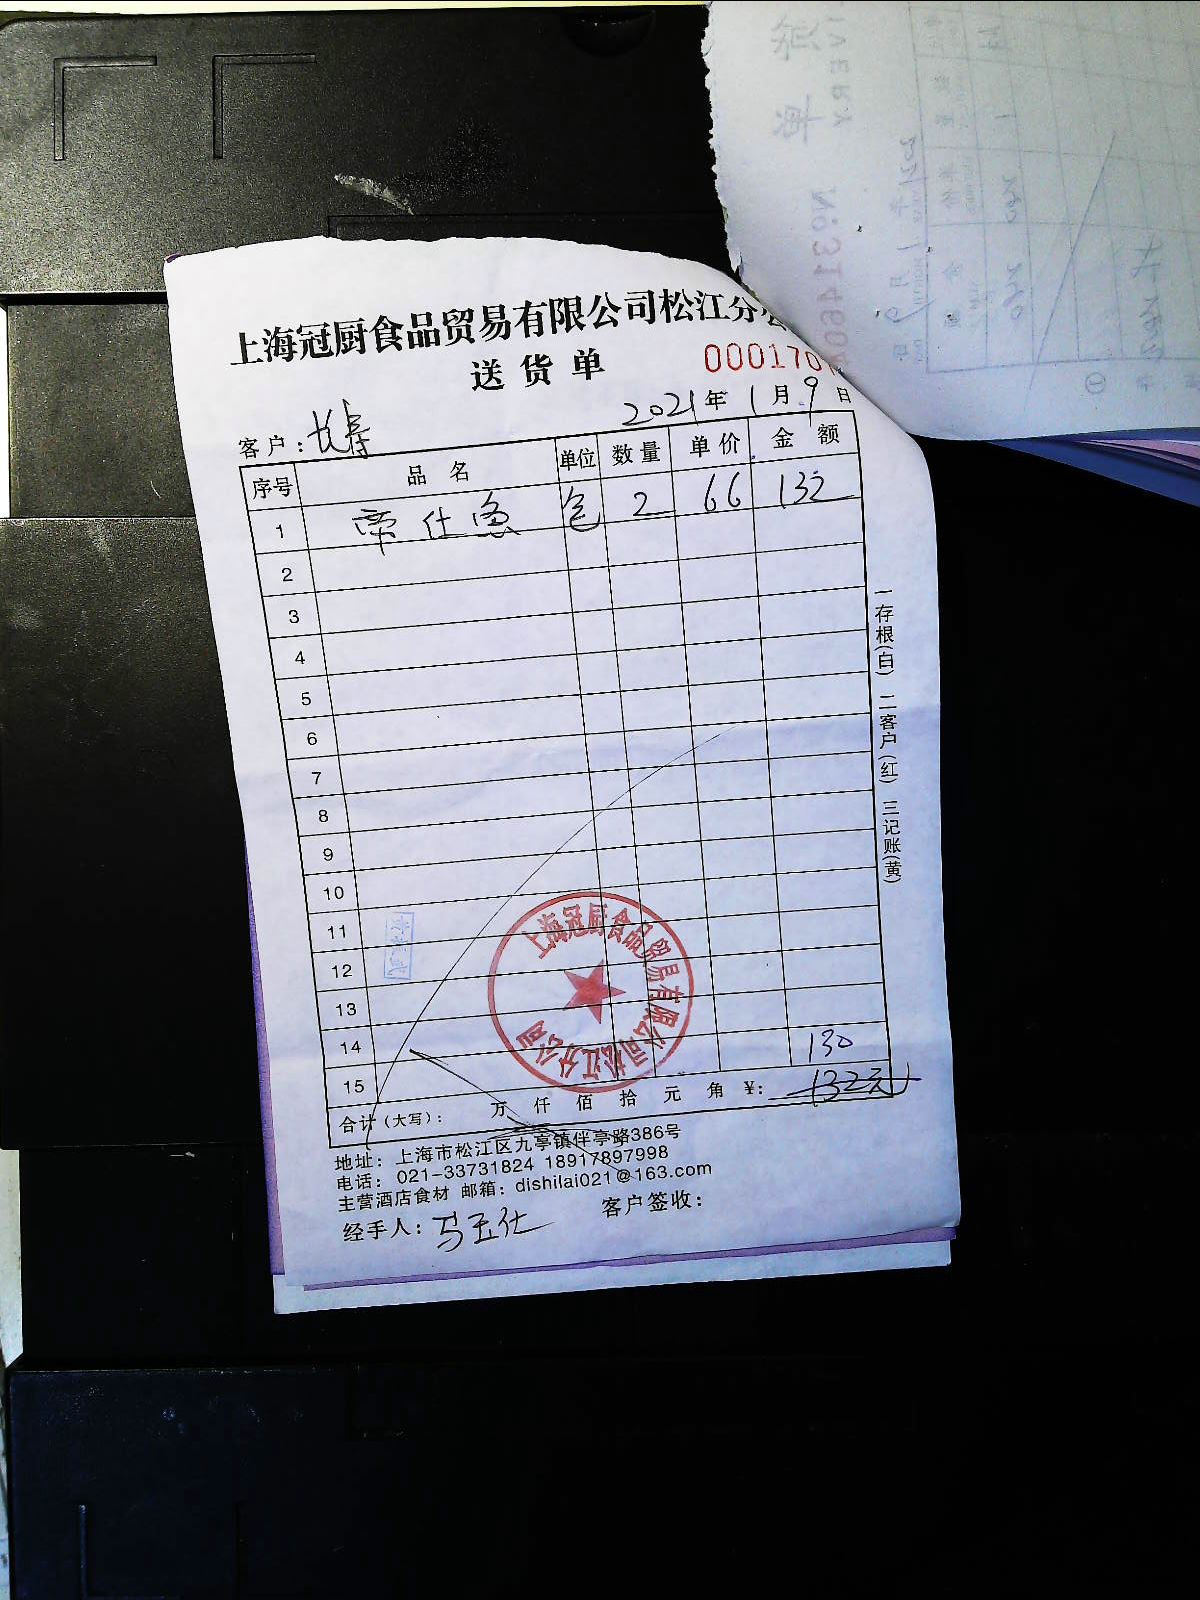 上海冠厨食品贸易有限公司松江分公
送货单
000170
客户：长寿
2021年1月9日
序号 品名 单位 数量 单价 金额
1 帝仕鱼 包 2 66 132
2
3
4
5
6
7
8
9
10
11
12
13
14 130
15
合计（大写）： 万 仟 佰 拾 元 角 ¥： 132元
地址：上海市松江区九亭镇伴亭路386号
电话：021-33731824 18917897998
主营酒店食材 邮箱：dishilai021@163.com
经手人：马玉仕 客户签收：
一存根(白) 二客户(红) 三记账(黄)
上海冠厨食品贸易有限公司松江分公司
№3146